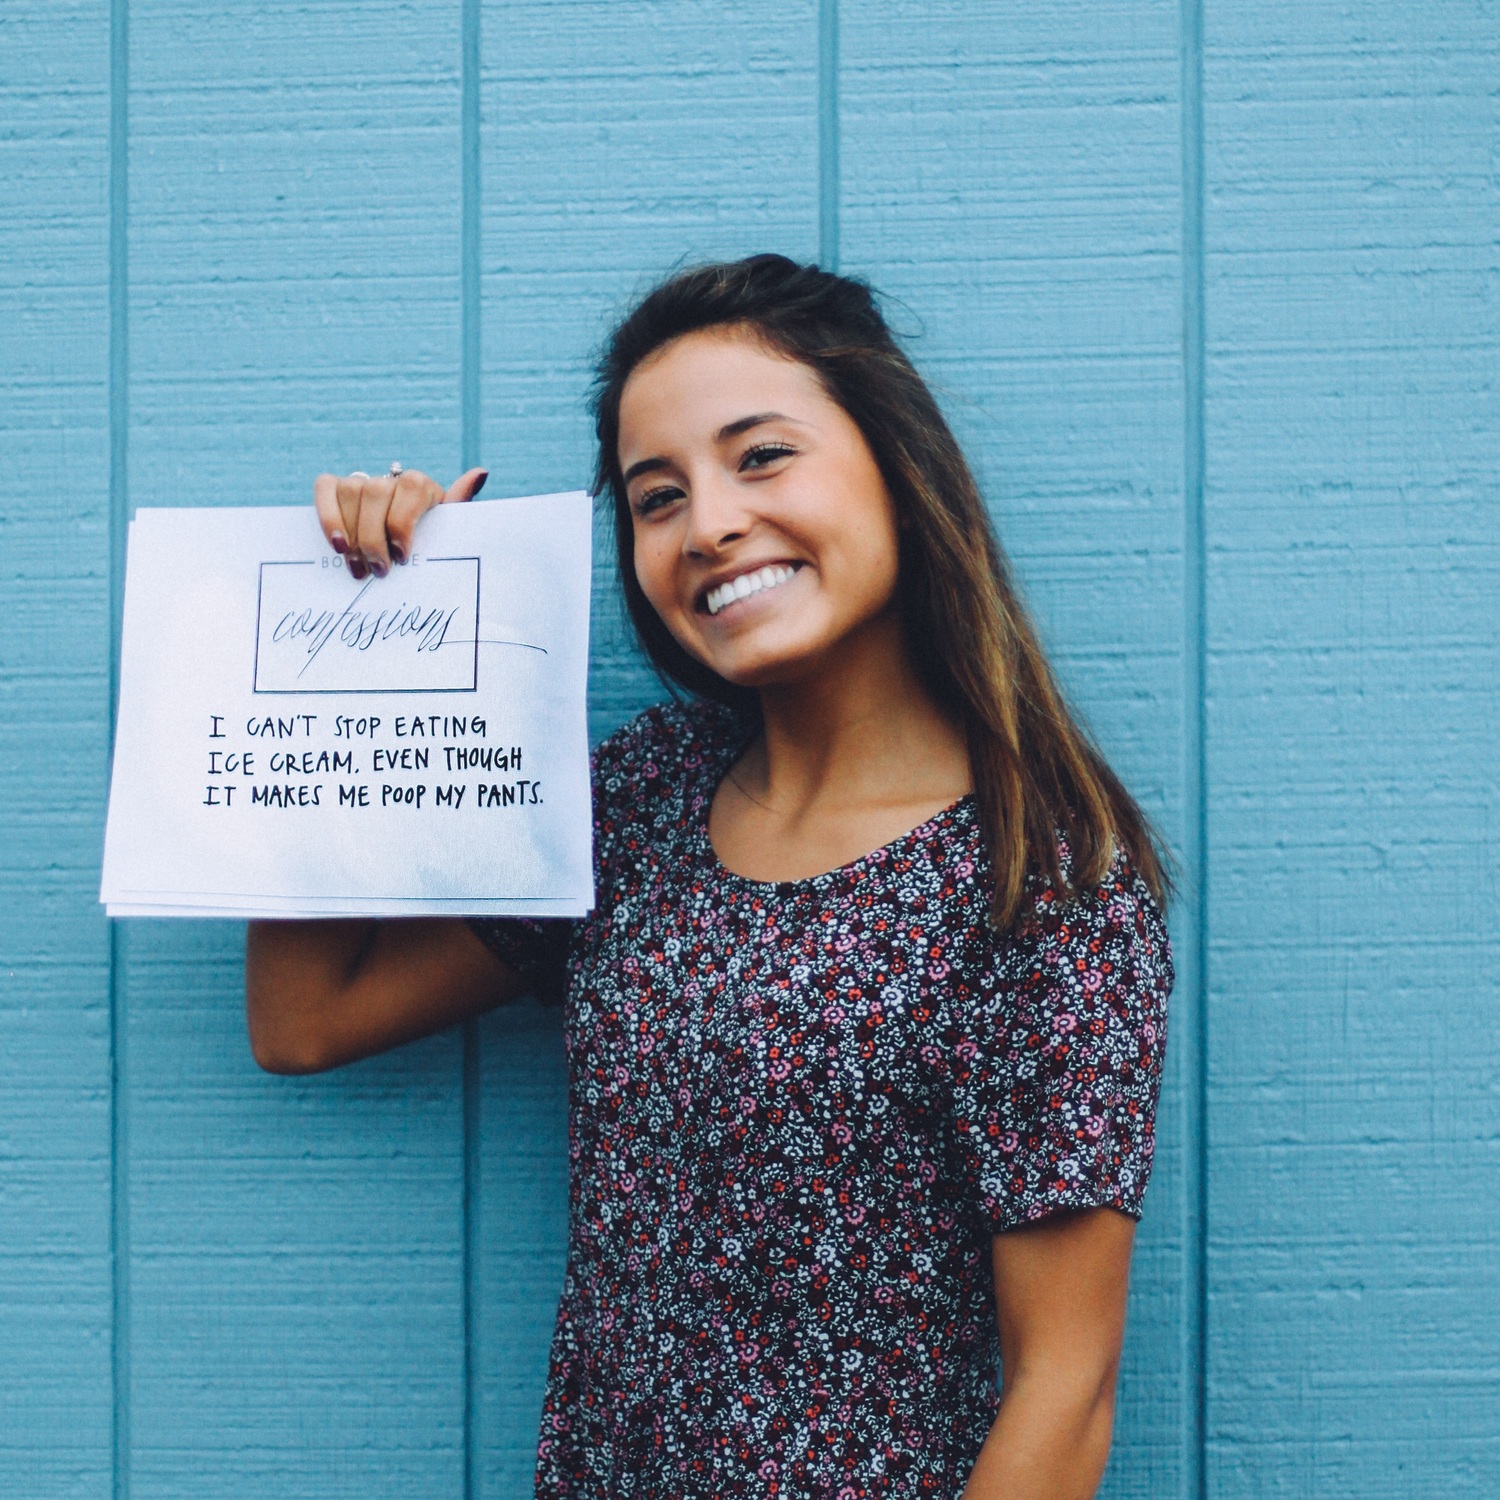 confessions
I CAN'T STOP EATING
ICE CREAM, EVEN THOUGH
IT MAKES ME POOP MY PANTS.